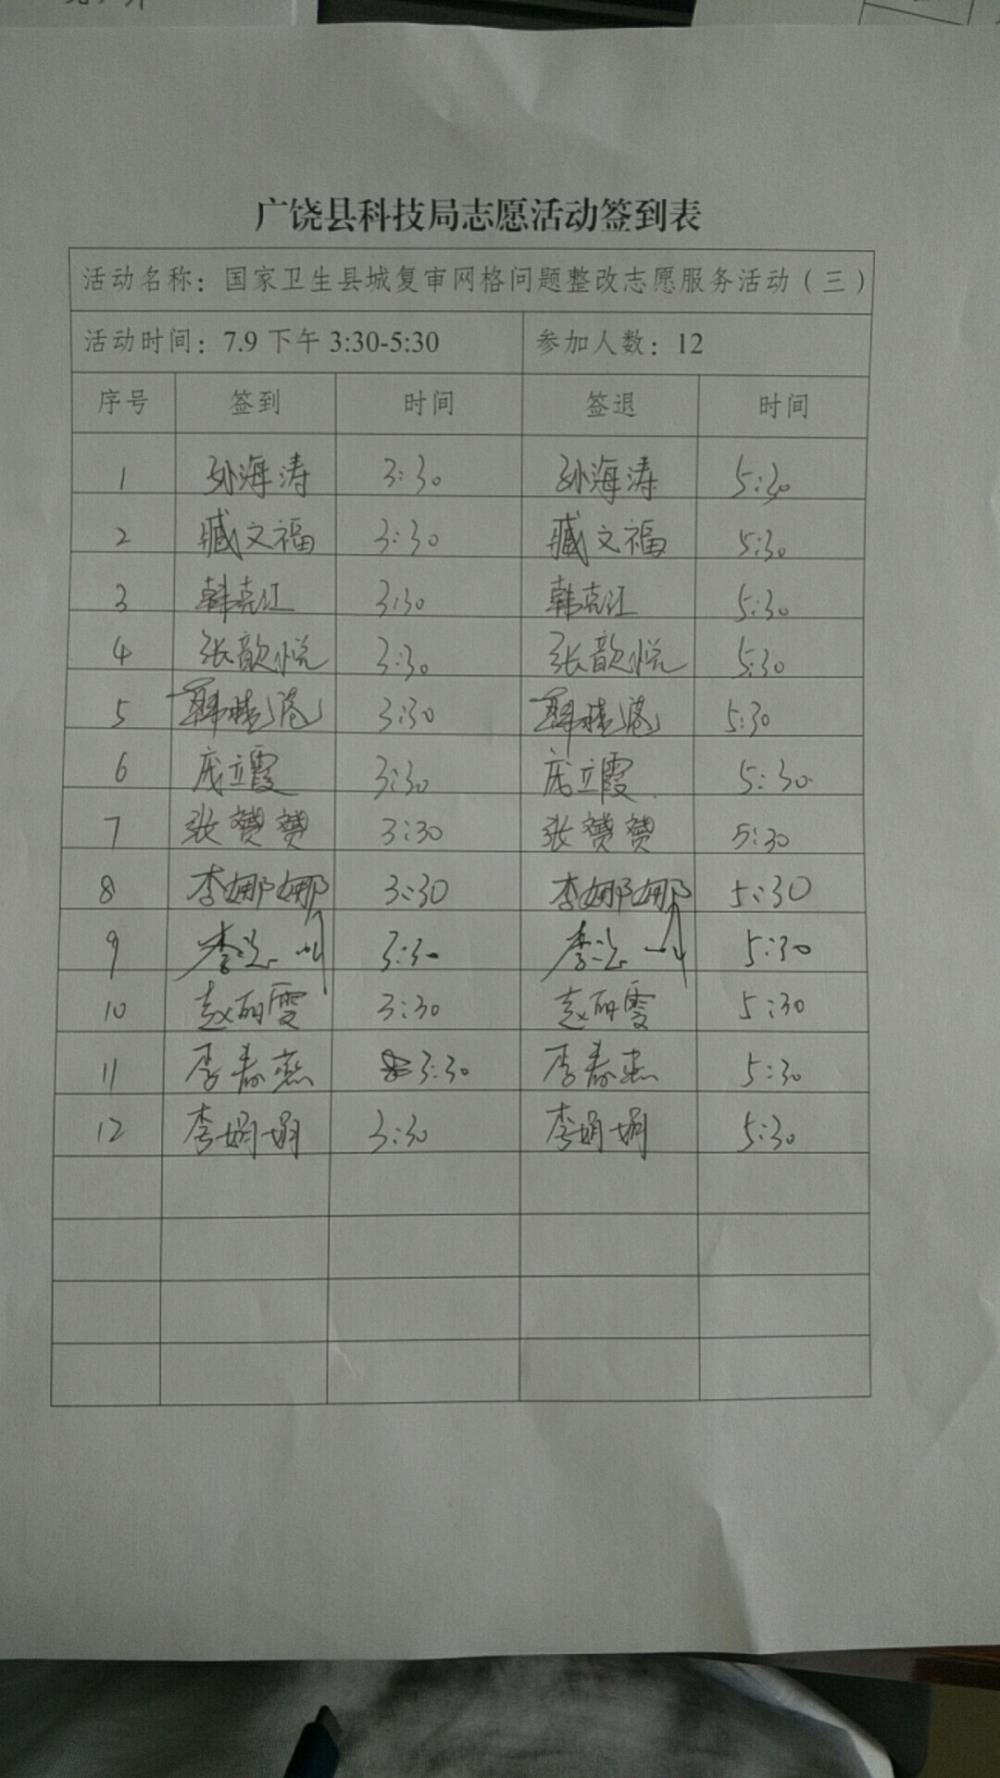 广饶县科技局志愿活动签到表
活动名称：国家卫生县城复审网格问题整改志愿服务活动（三）
活动时间：7.9 下午 3:30-5:30 参加人数：12
序号 签到 时间 签退 时间
1 孙海涛 3:30 孙海涛 5:30
2 臧文福 3:30 臧文福 5:30
3 韩克江 3:30 韩克江 5:30
4 张歆悦 3:30 张歆悦 5:30
5 3:30 5:30
6 庞立霞 3:30 庞立霞 5:30
7 张赟赟 3:30 张赟赟 5:30
8 李娜娜 3:30 李娜娜 5:30
9 李 3:30 李 5:30
10 赵丽雯 3:30 赵丽雯 5:30
11 李春燕 3:30 李春燕 5:30
12 李娟娟 3:30 李娟娟 5:30